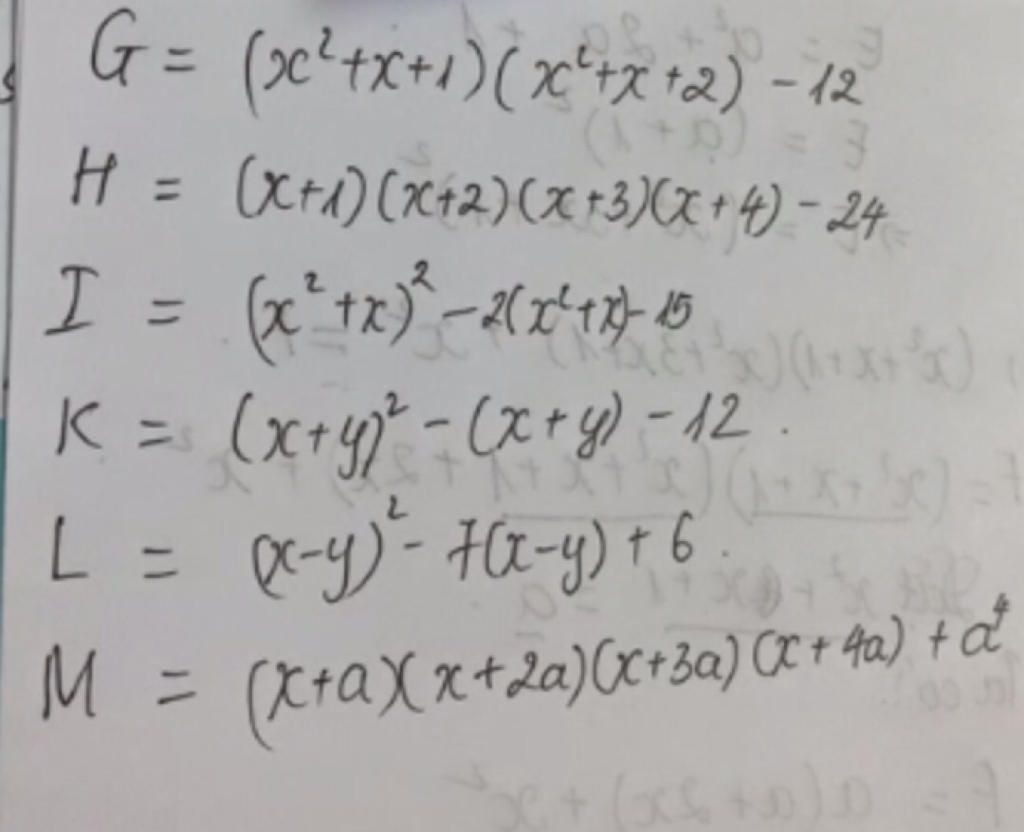 G = (x²+x+1)(x²+x+2) - 12
H = (x+1)(x+2)(x+3)(x+4) - 24
I = (x²+x)² - 2(x²+x) - 15
K = (x+y)² - (x+y) - 12.
L = (x-y)² - 7(x-y) + 6.
M = (x+a)(x+2a)(x+3a)(x+4a) + a⁴